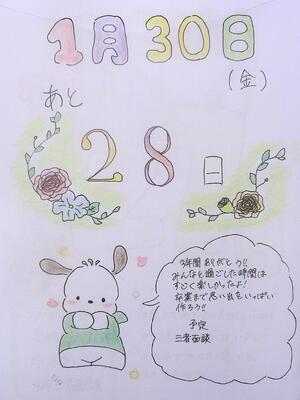 1月30日
(金)
あと
28日
3年間ありがとう!!
みんなと過ごした時間は
すごく楽しかったよ!
卒業まで思い出をいっぱい
作ろう!!
予定
三者面談